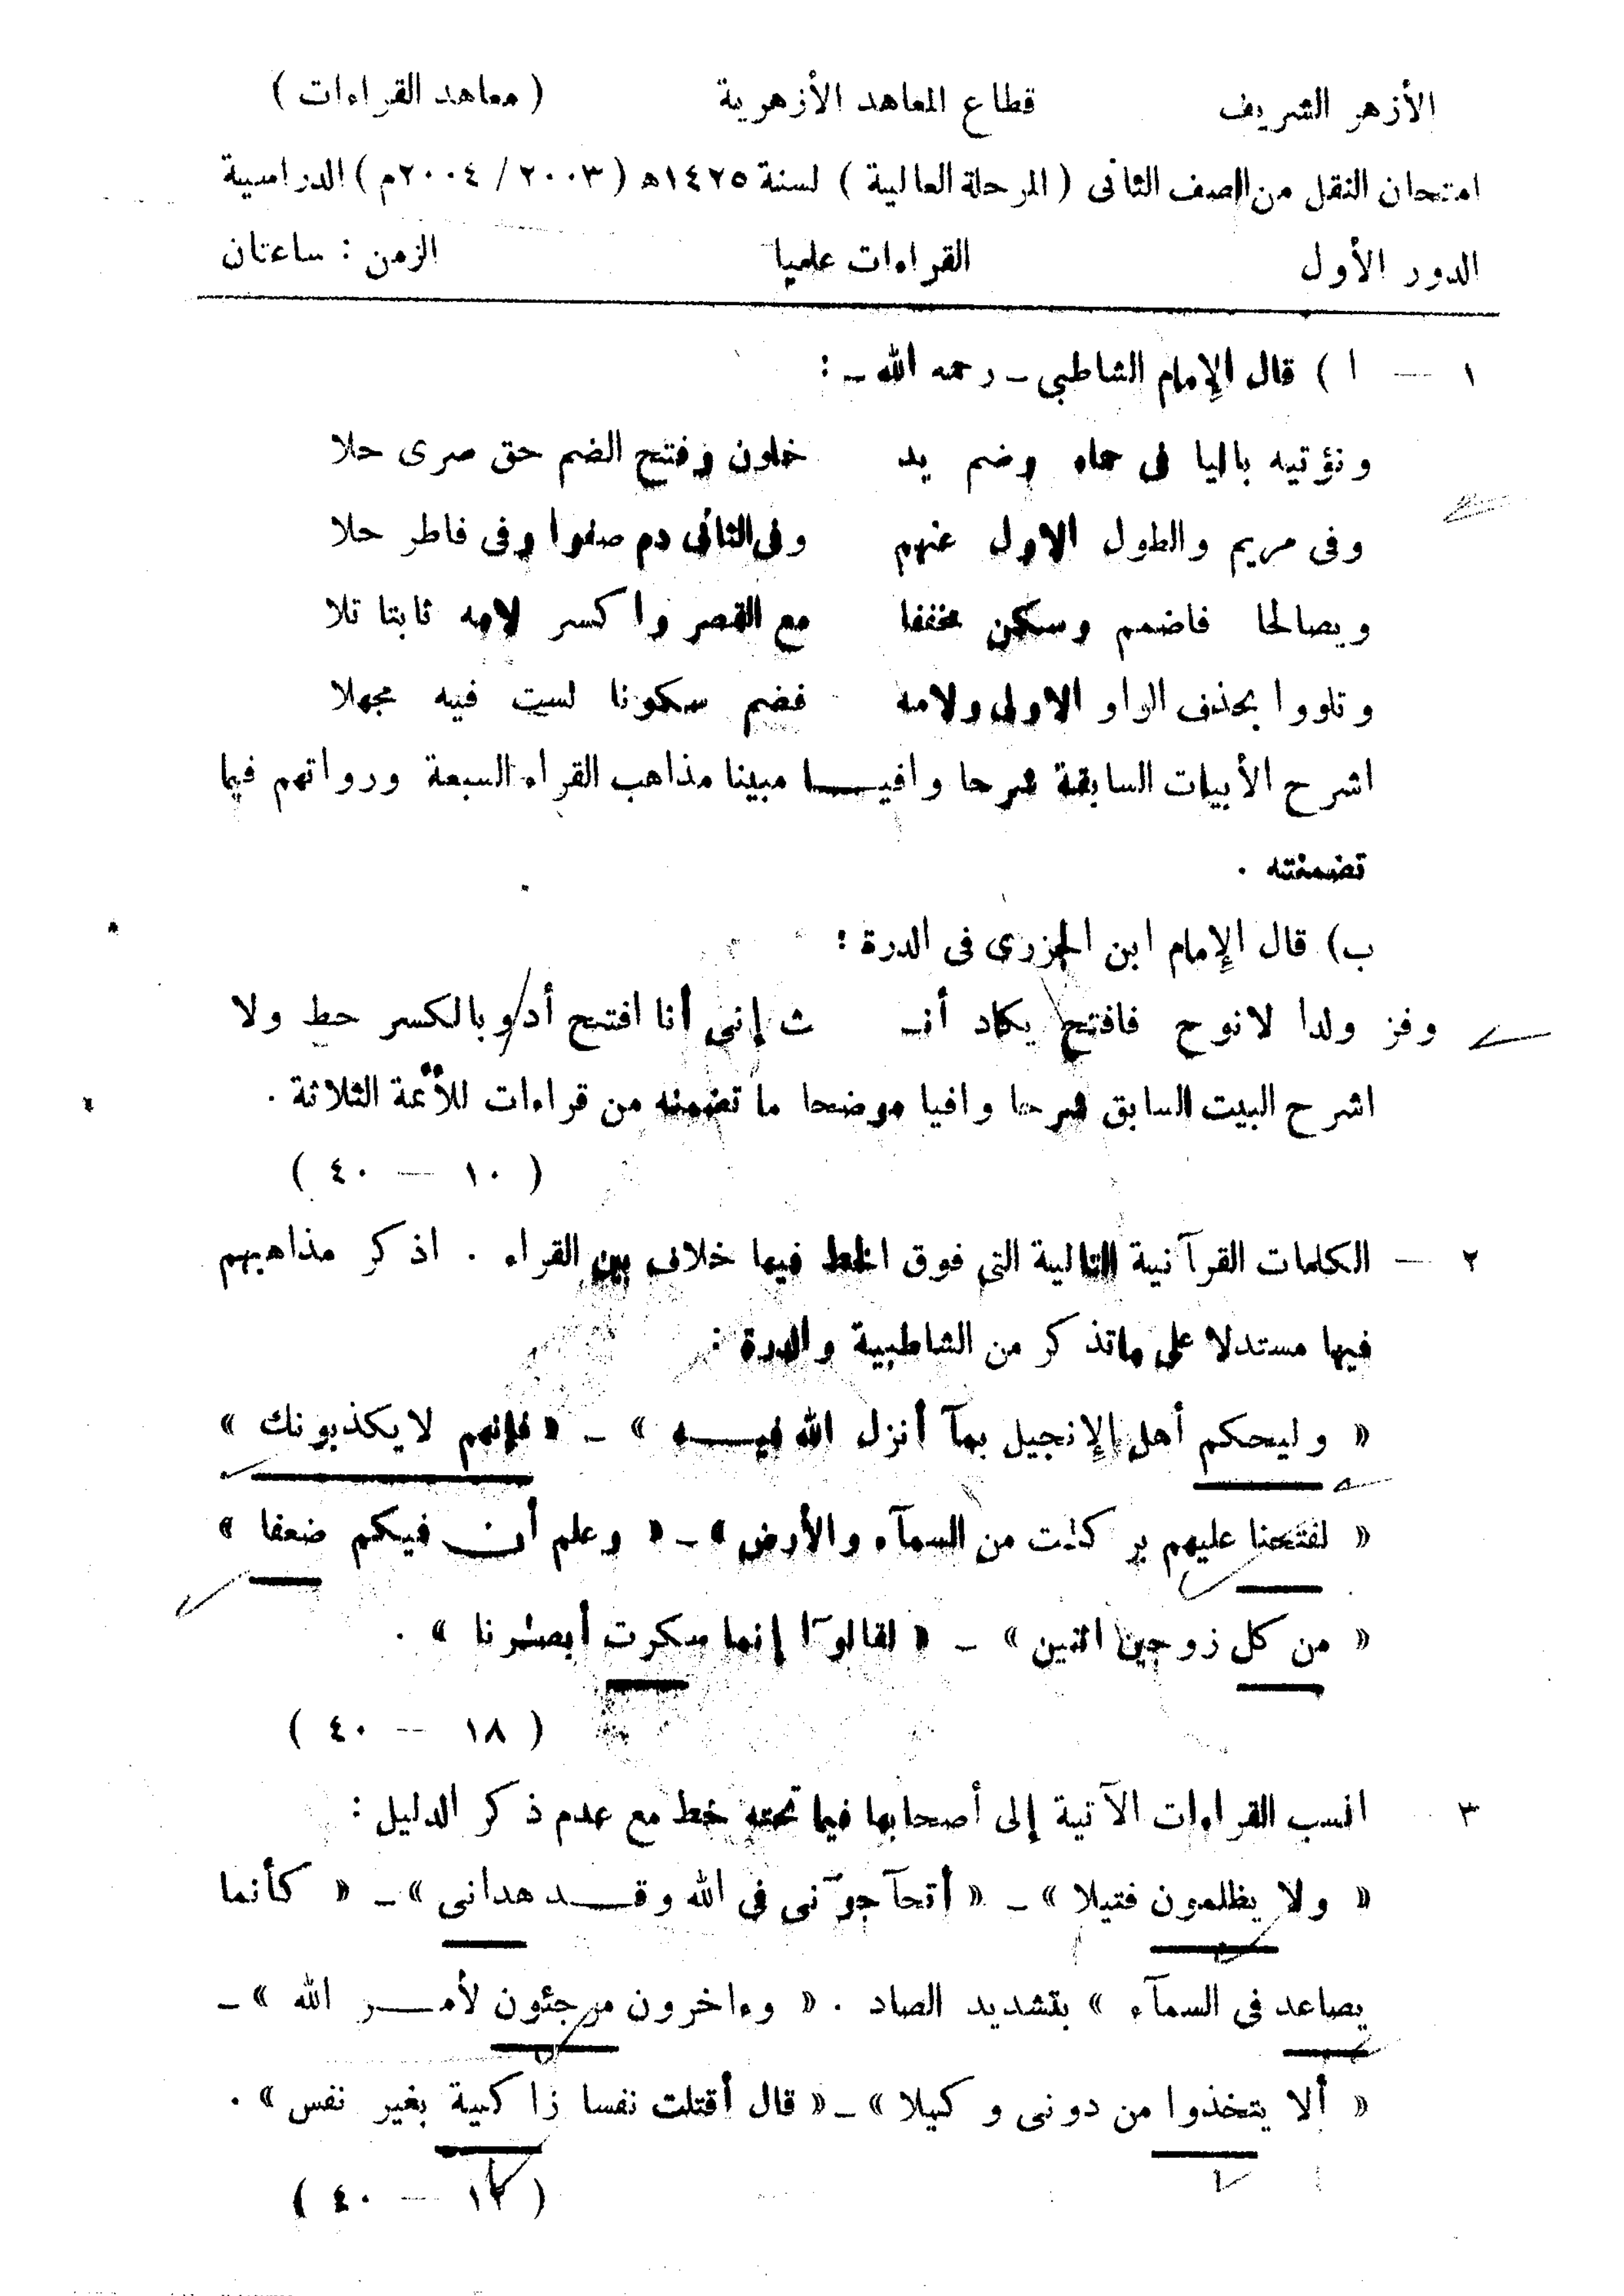 الأزهر الشريف قطاع المعاهد الأزهرية ( معاهد القراءات )
امتحان النقل من الصف الثانى ( المرحلة العالية ) لسنة ١٤٢٥ه ( ٢٠٠٣ / ٢٠٠٤م ) الدراسية
الدور الأول القراءات علميا الزمن : ساعتان
١ — أ ) قال الإمام الشاطبى ـ رحمه الله ـ :
ونؤتيه باليا فى حماه وضم يد خلون وفتح الضم حق صرى حلا
وفى مريم والطول الاول عنهم وفى الثانى دم صفوا وفى فاطر حلا
ويصالحا فاضمم وسكن مخففا مع القصر واكسر لامه ثابتا تلا
وتلووا بحذف الواو الاولى ولامه فضم سكونا لست فيه مجهلا
اشرح الأبيات السابقة شرحا وافيا مبينا مذاهب القراء السبعة ورواتهم فيما
تضمنته .
ب) قال الإمام ابن الجزرى فى الدرة :
وفز ولدا لا نوح فافتح يكاد أنـ ث إنى أنا افتح أد وبالكسر حط ولا
اشرح البيت السابق شرحا وافيا موضحا ما تضمنه من قراءات للأئمة الثلاثة .
( ١٠ — ٤٠ )
٢ — الكلمات القرآنية التالية التى فوق الخط فيها خلاف بين القراء . اذكر مذاهبهم
فيها مستدلا على ماتذكر من الشاطبية والدرة :
« وليحكم أهل الإنجيل بمآ أنزل الله فيه » ـ « فإنهم لا يكذبونك »
« لفتحنا عليهم بركـٰت من السمآء والأرض » ـ « وعلم أن فيكم ضعفا »
« من كل زوجين اثنين » ـ « لقالوٓا إنما سكرت أبصـٰرنا » .
( ١٨ — ٤٠ )
٣ انسب القراءات الآتية إلى أصحابها فيما تحته خط مع عدم ذكر الدليل :
« ولا يظلمون فتيلا » ـ « أتحآجوٓنى فى الله وقد هدانى » ـ « كأنما
يصاعد فى السمآء » بتشديد الصاد . « وءاخرون مرجئون لأمر الله » ـ
« ألا يتخذوا من دونى وكيلا » ـ « قال أقتلت نفسا زاكية بغير نفس » .
( ١٢ — ٤٠ )